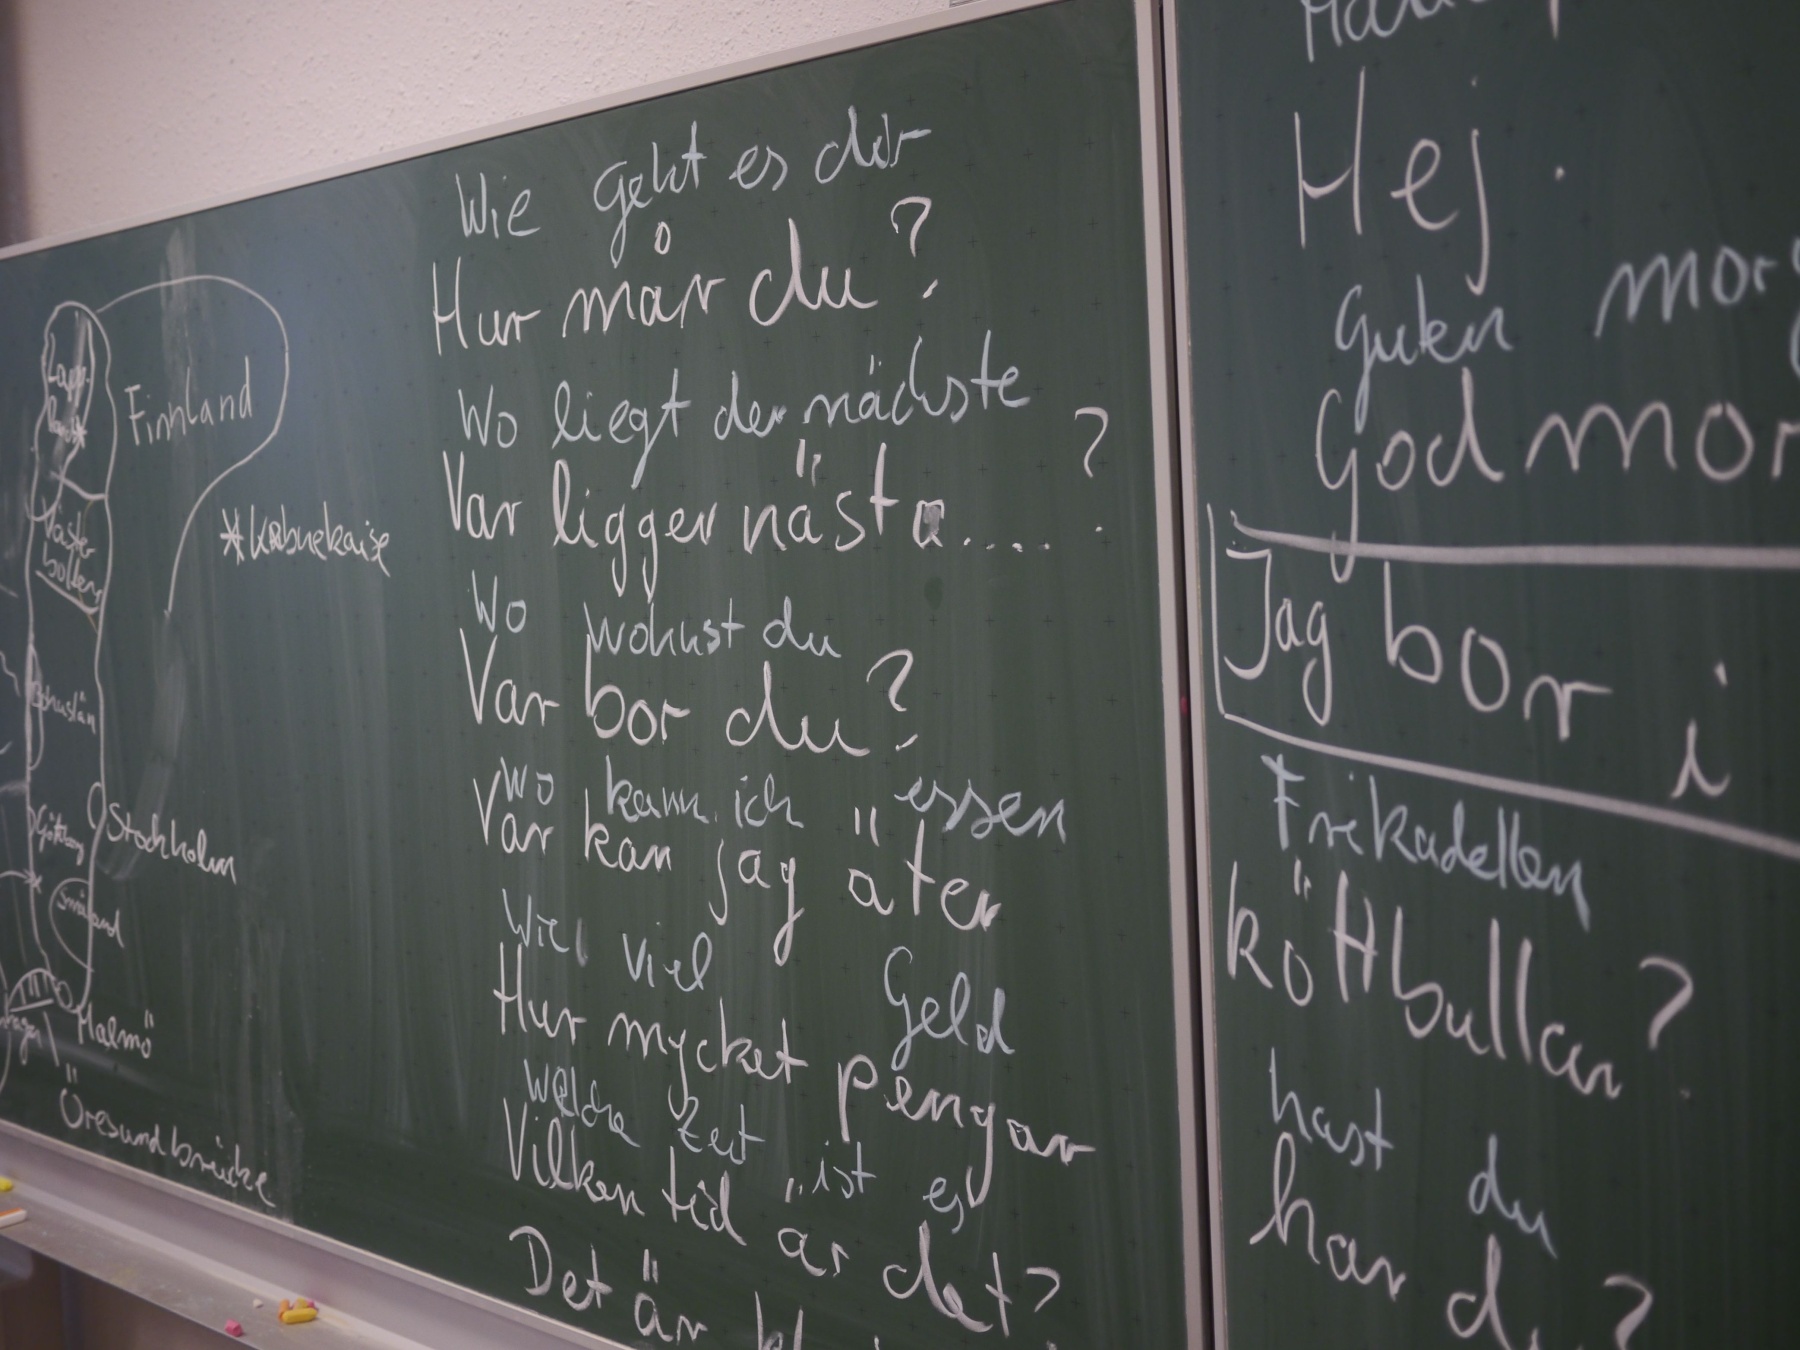 Finnland
*Kebnekaise
Väster
botten
Bohuslän
Göteborg
Stockholm
Småland
Malmö
Öresundbrücke
Wie geht es dir
Hur mår du?
Wo liegt der nächste
Var ligger nästa....?
Wo wohnst du
Var bor du?
Wo kann ich essen
Var kan jag äter
Wie viel Geld
Hur mycket pengar
Welche Zeit ist es
Vilken tid är det?
Det är
Hej.
Guten mor
God mor
Jag bor i
Frikadellen
köttbullar?
hast du
har du?